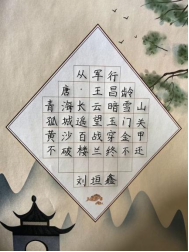 从军行
唐 王昌龄
青海长云暗雪山
孤城遥望玉门关
黄沙百战穿金甲
不破楼兰终不还
刘垣鑫